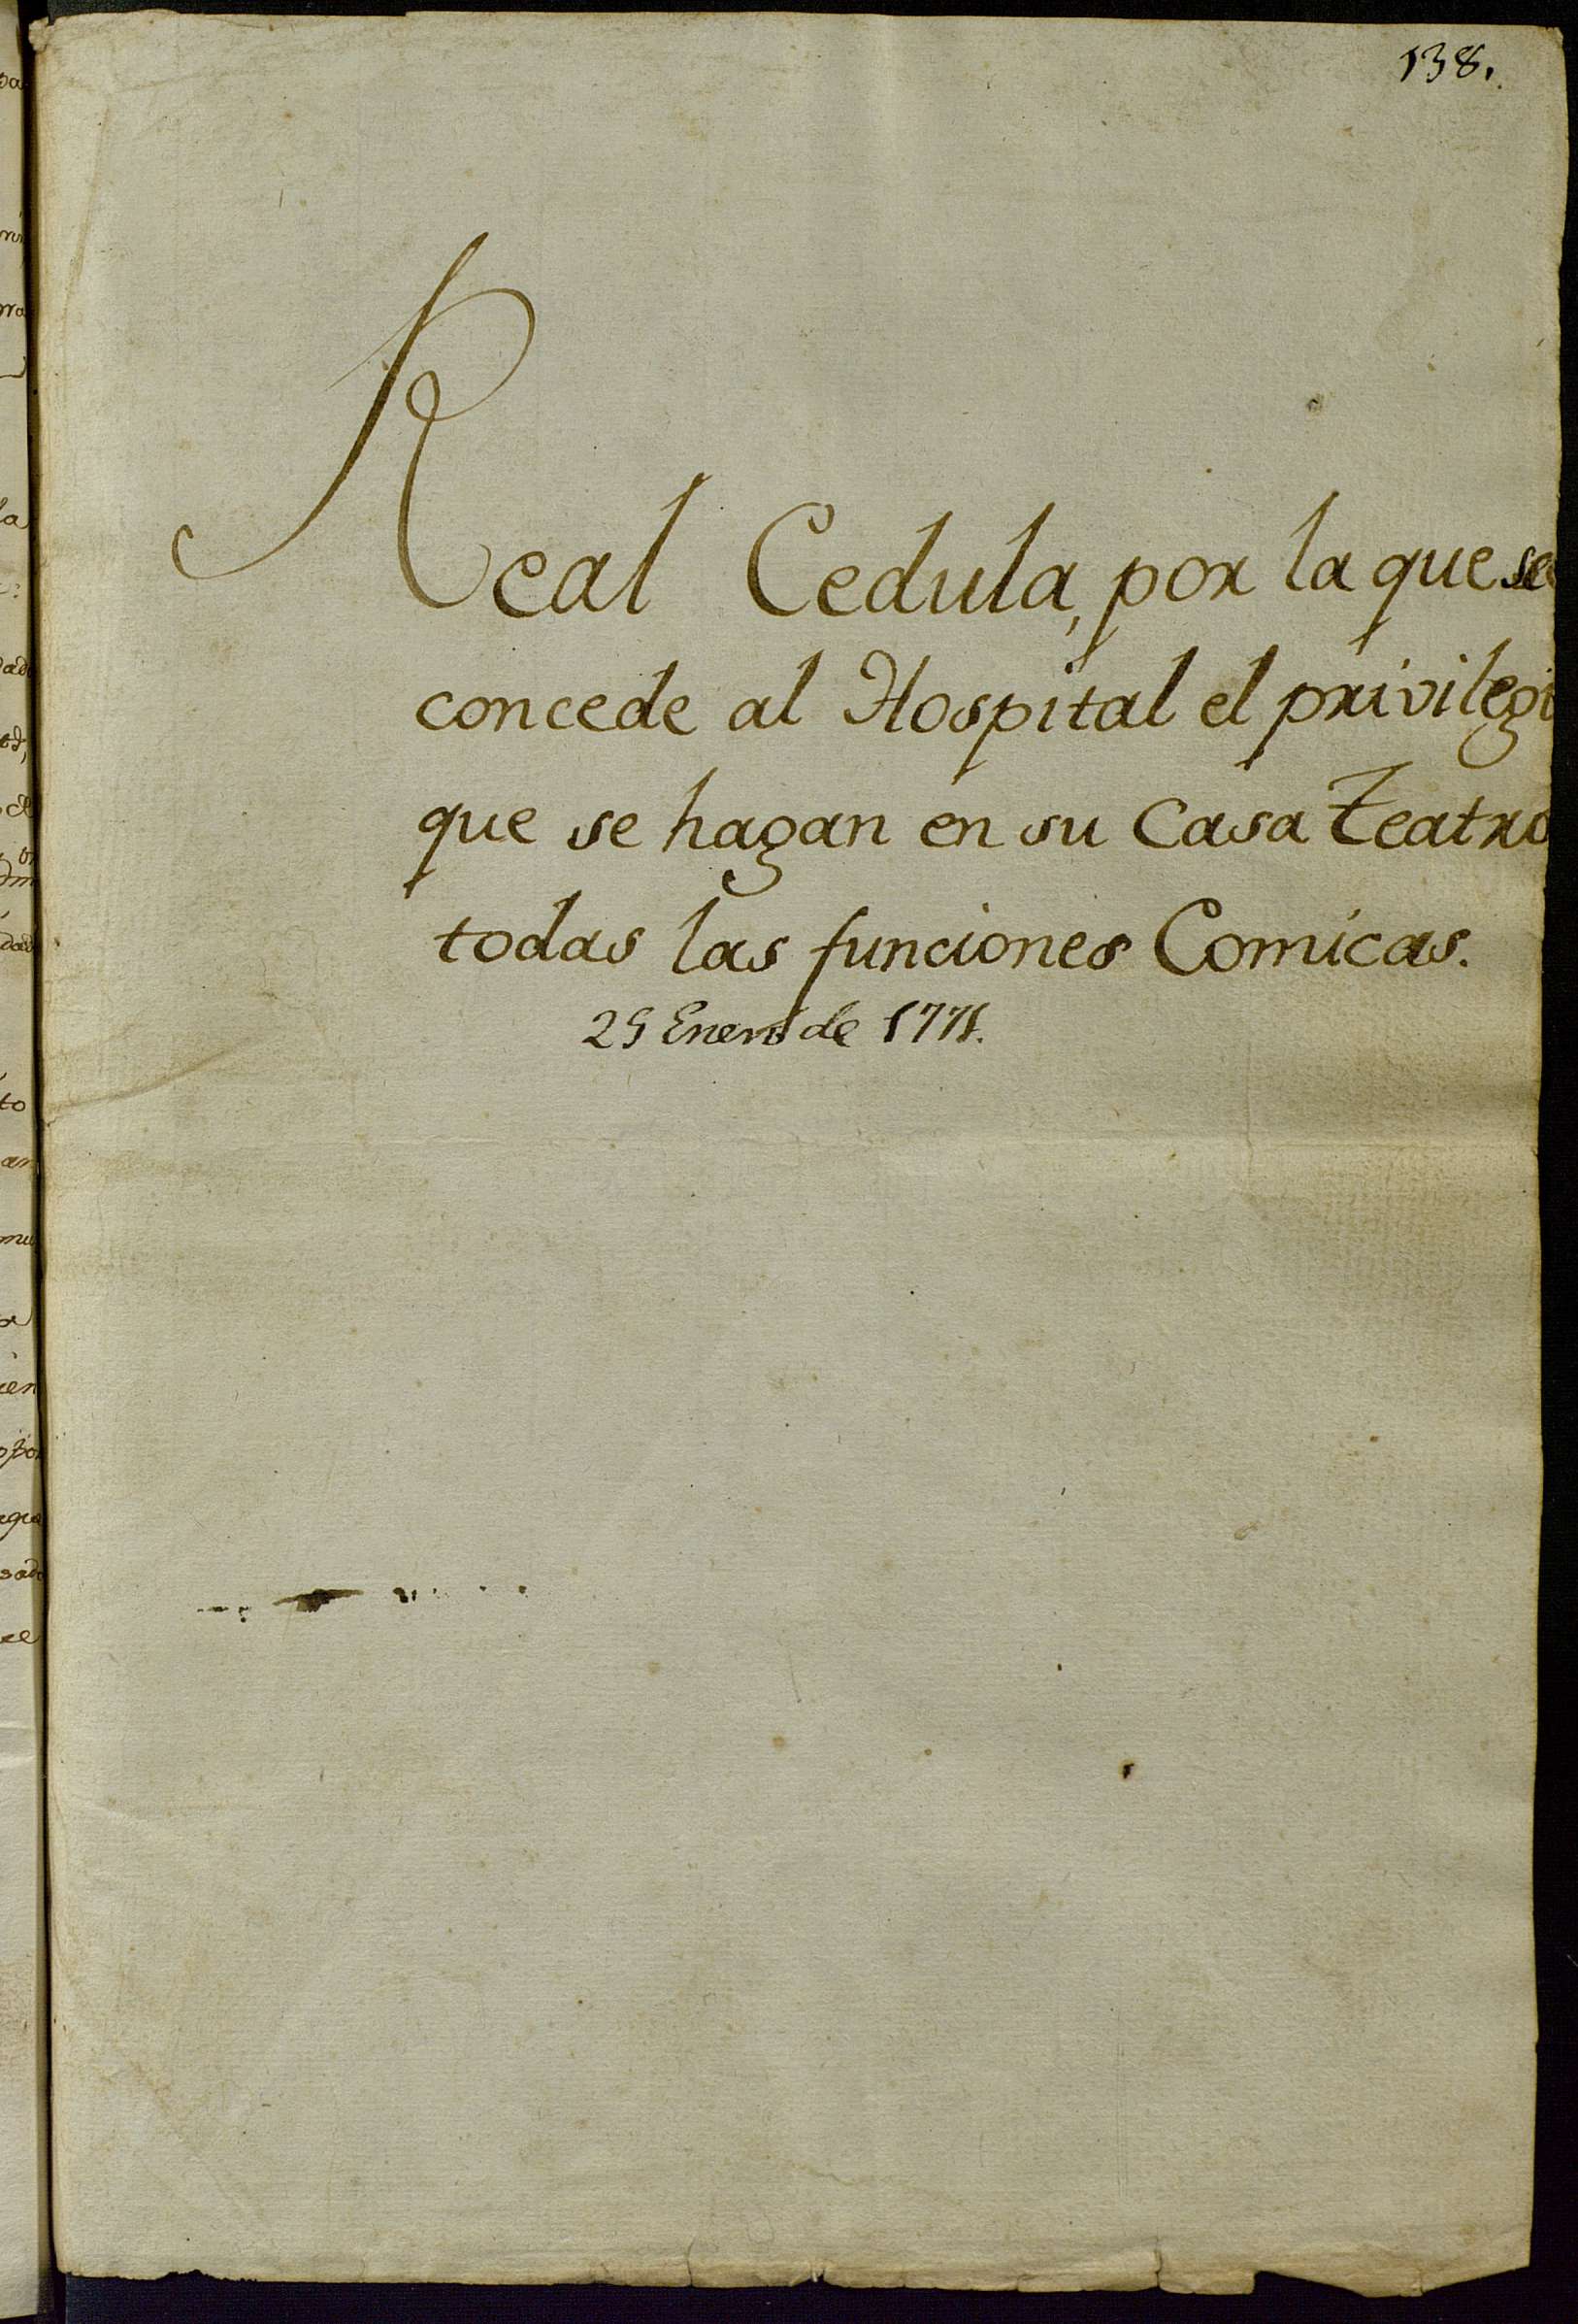 138.
Real Cedula, por la que se
concede al Hospital el privilegio
que se hagan en su Casa teatro
todas las funciones Comicas.
25 Enero de 1771.